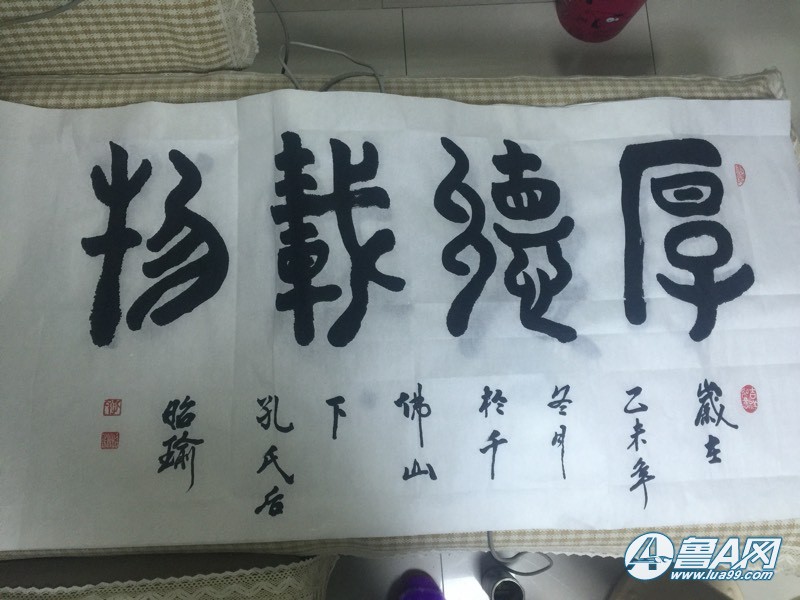 厚德载物
歲在
乙未年
冬月
於千
佛山
下
孔氏后
昭瑜
鲁A网
www.lua99.com